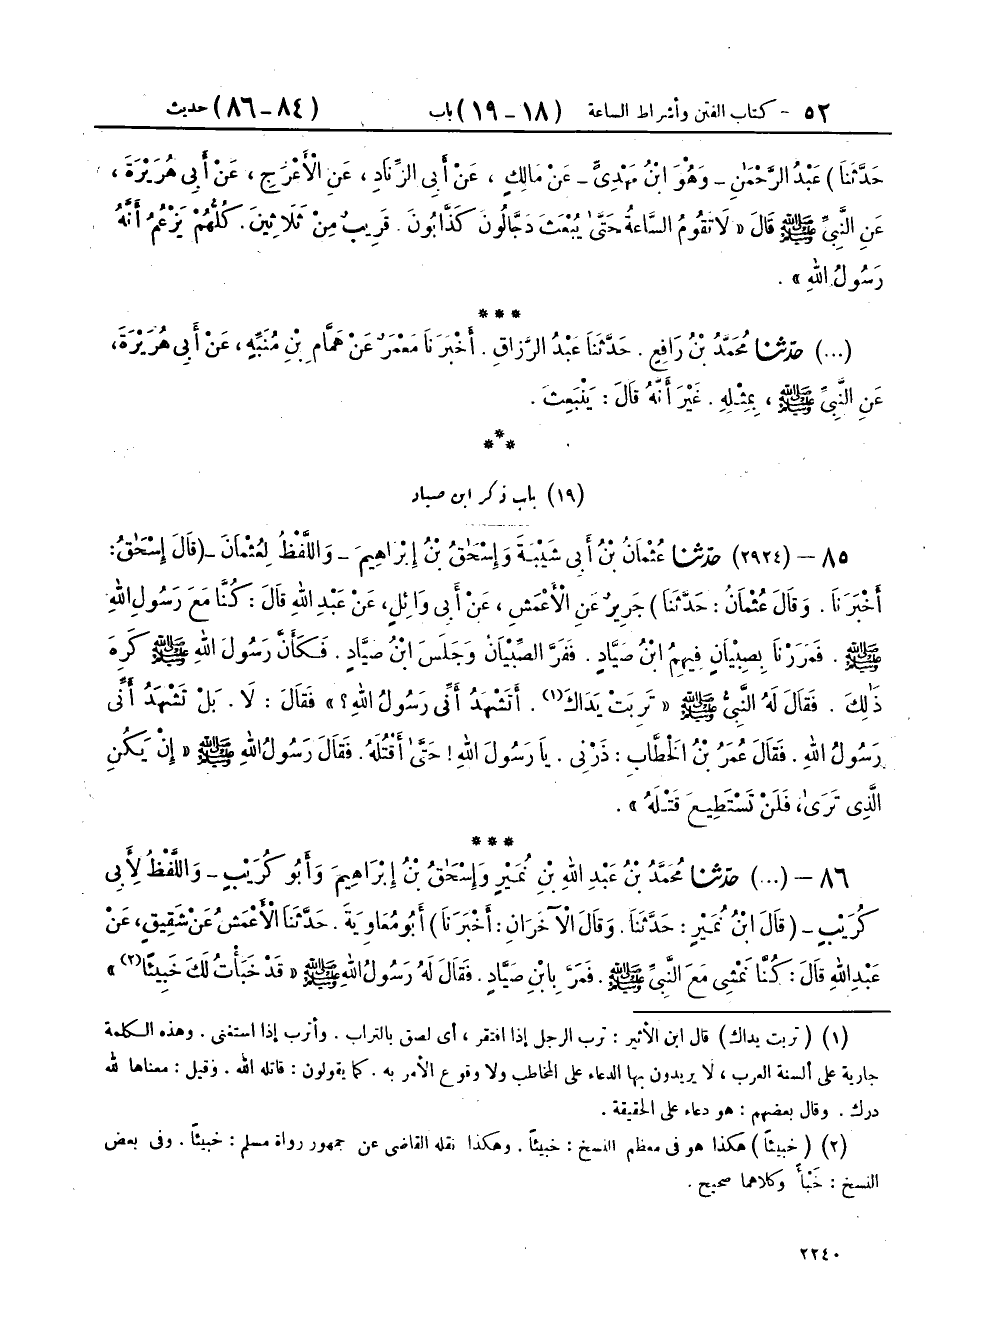 ٥٢ - كتاب الفتن وأشراط الساعة (١٨ - ١٩) باب (٨٤ - ٨٦) حديث
حَدَّثَنَا) عَبْدُ الرَّحْمَٰنِ - وَهُوَ ابْنُ مَهْدِىٍّ - عَنْ مَالِكٍ ، عَنْ أَبِى الزِّنَادِ ، عَنِ الْأَعْرَجِ ، عَنْ أَبِى هُرَيْرَةَ ،
عَنِ النَّبِىِّ ﷺ قَالَ « لَا تَقُومُ السَّاعَةُ حَتَّىٰ يُبْعَثَ دَجَّالُونَ كَذَّابُونَ . قَرِيبٌ مِنْ ثَلَاثِينَ . كُلُّهُمْ يَزْعُمُ أَنَّهُ
رَسُولُ اللهِ » .
***
(...) حَدَّثَنَا مُحَمَّدُ بْنُ رَافِعٍ . حَدَّثَنَا عَبْدُ الرَّزَّاقِ . أَخْبَرَنَا مَعْمَرٌ عَنْ هَمَّامِ بْنِ مُنَبِّهٍ ، عَنْ أَبِى هُرَيْرَةَ ،
عَنِ النَّبِىِّ ﷺ ، بِمِثْلِهِ . غَيْرَ أَنَّهُ قَالَ : يَنْبَعِثَ .
***
(١٩) باب ذكر ابن صياد
٨٥ - (٢٩٢٤) حَدَّثَنَا عُثْمَانُ بْنُ أَبِى شَيْبَةَ وَإِسْحَٰقُ بْنُ إِبْرَاهِيمَ - وَاللَّفْظُ لِعُثْمَانَ - (قَالَ إِسْحَٰقُ :
أَخْبَرَنَا . وَقَالَ عُثْمَانُ : حَدَّثَنَا) جَرِيرٌ عَنِ الْأَعْمَشِ ، عَنْ أَبِى وَائِلٍ ، عَنْ عَبْدِ اللهِ قَالَ : كُنَّا مَعَ رَسُولِ اللهِ
ﷺ . فَمَرَرْنَا بِصِبْيَانٍ فِيهِمُ ابْنُ صَيَّادٍ . فَفَرَّ الصِّبْيَانُ وَجَلَسَ ابْنُ صَيَّادٍ . فَكَأَنَّ رَسُولَ اللهِ ﷺ كَرِهَ
ذَٰلِكَ . فَقَالَ لَهُ النَّبِىُّ ﷺ « تَرِبَتْ يَدَاكَ(١) . أَتَشْهَدُ أَنِّى رَسُولُ اللهِ ؟ » فَقَالَ : لَا . بَلْ تَشْهَدُ أَنِّى
رَسُولُ اللهِ . فَقَالَ عُمَرُ بْنُ الْخَطَّابِ : ذَرْنِى . يَا رَسُولَ اللهِ ! حَتَّىٰ أَقْتُلَهُ . فَقَالَ رَسُولُ اللهِ ﷺ « إِنْ يَكُنِ
الَّذِى تَرَىٰ ، فَلَنْ تَسْتَطِيعَ قَتْلَهُ » .
***
٨٦ - (...) حَدَّثَنَا مُحَمَّدُ بْنُ عَبْدِ اللهِ بْنِ نُمَيْرٍ وَإِسْحَٰقُ بْنُ إِبْرَاهِيمَ وَأَبُو كُرَيْبٍ - وَاللَّفْظُ لِأَبِى
كُرَيْبٍ - (قَالَ ابْنُ نُمَيْرٍ : حَدَّثَنَا . وَقَالَ الْآخَرَانِ : أَخْبَرَنَا) أَبُو مُعَاوِيَةَ . حَدَّثَنَا الْأَعْمَشُ عَنْ شَقِيقٍ ، عَنْ
عَبْدِ اللهِ قَالَ : كُنَّا نَمْشِى مَعَ النَّبِىِّ ﷺ . فَمَرَّ بِابْنِ صَيَّادٍ . فَقَالَ لَهُ رَسُولُ اللهِ ﷺ « قَدْ خَبَأْتُ لَكَ خَبِيئًا(٢) »
(١) ( تربت يداك) قال ابن الأثير : ترب الرجل إذا افتقر ، أى لصق بالتراب . وأترب إذا استغنى . وهذه الكلمة
جارية على ألسنة العرب ، لا يريدون بها الدعاء على المخاطب ولا وقوع الأمر به . كما يقولون : قاتله الله . وقيل : معناها لله
درك . وقال بعضهم : هو دعاء على الحقيقة .
(٢) ( خبيئاً) هكذا هو فى معظم النسخ : خبيئاً . وهكذا نقله القاضى عن جمهور رواة مسلم : خبيئاً . وفى بعض
النسخ : خَبْأً وكلاهما صحيح .
٢٢٤٠